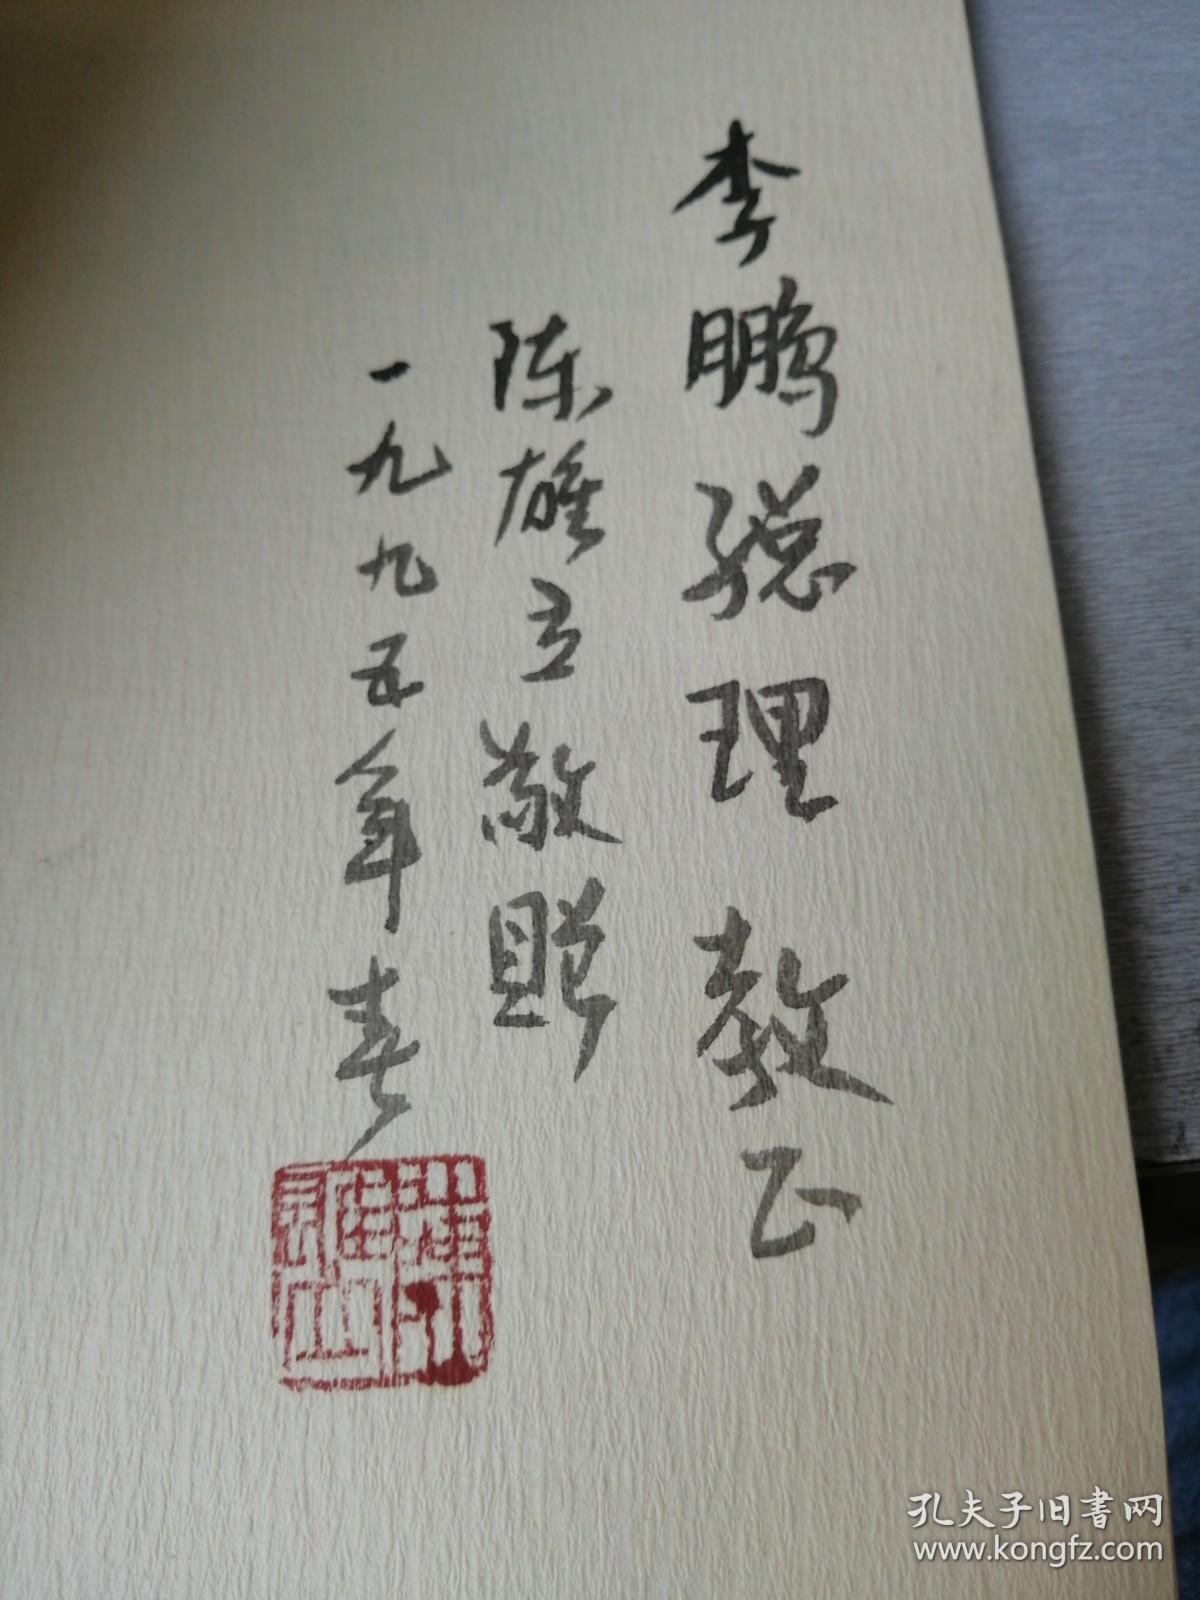 李鹏總理教正
陈雄立敬贈
一九九五年春
孔夫子旧書网
www.kongfz.com